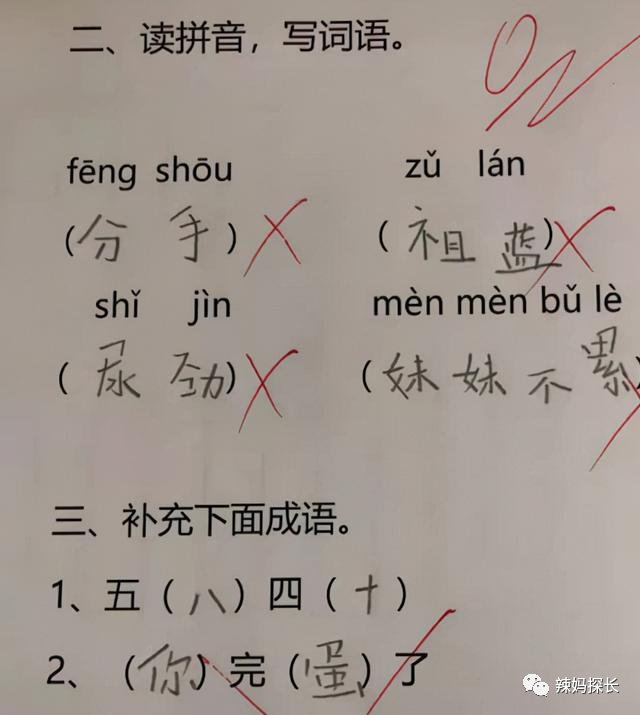 二、读拼音，写词语。
fēng shōu zǔ lán
(分 手) (祖 蓝)
shǐ jìn mèn mèn bǔ lè
(尿 劲) (妹 妹 不 累)
三、补充下面成语。
1、五（八）四（十）
2、（你）完（蛋）了
辣妈探长